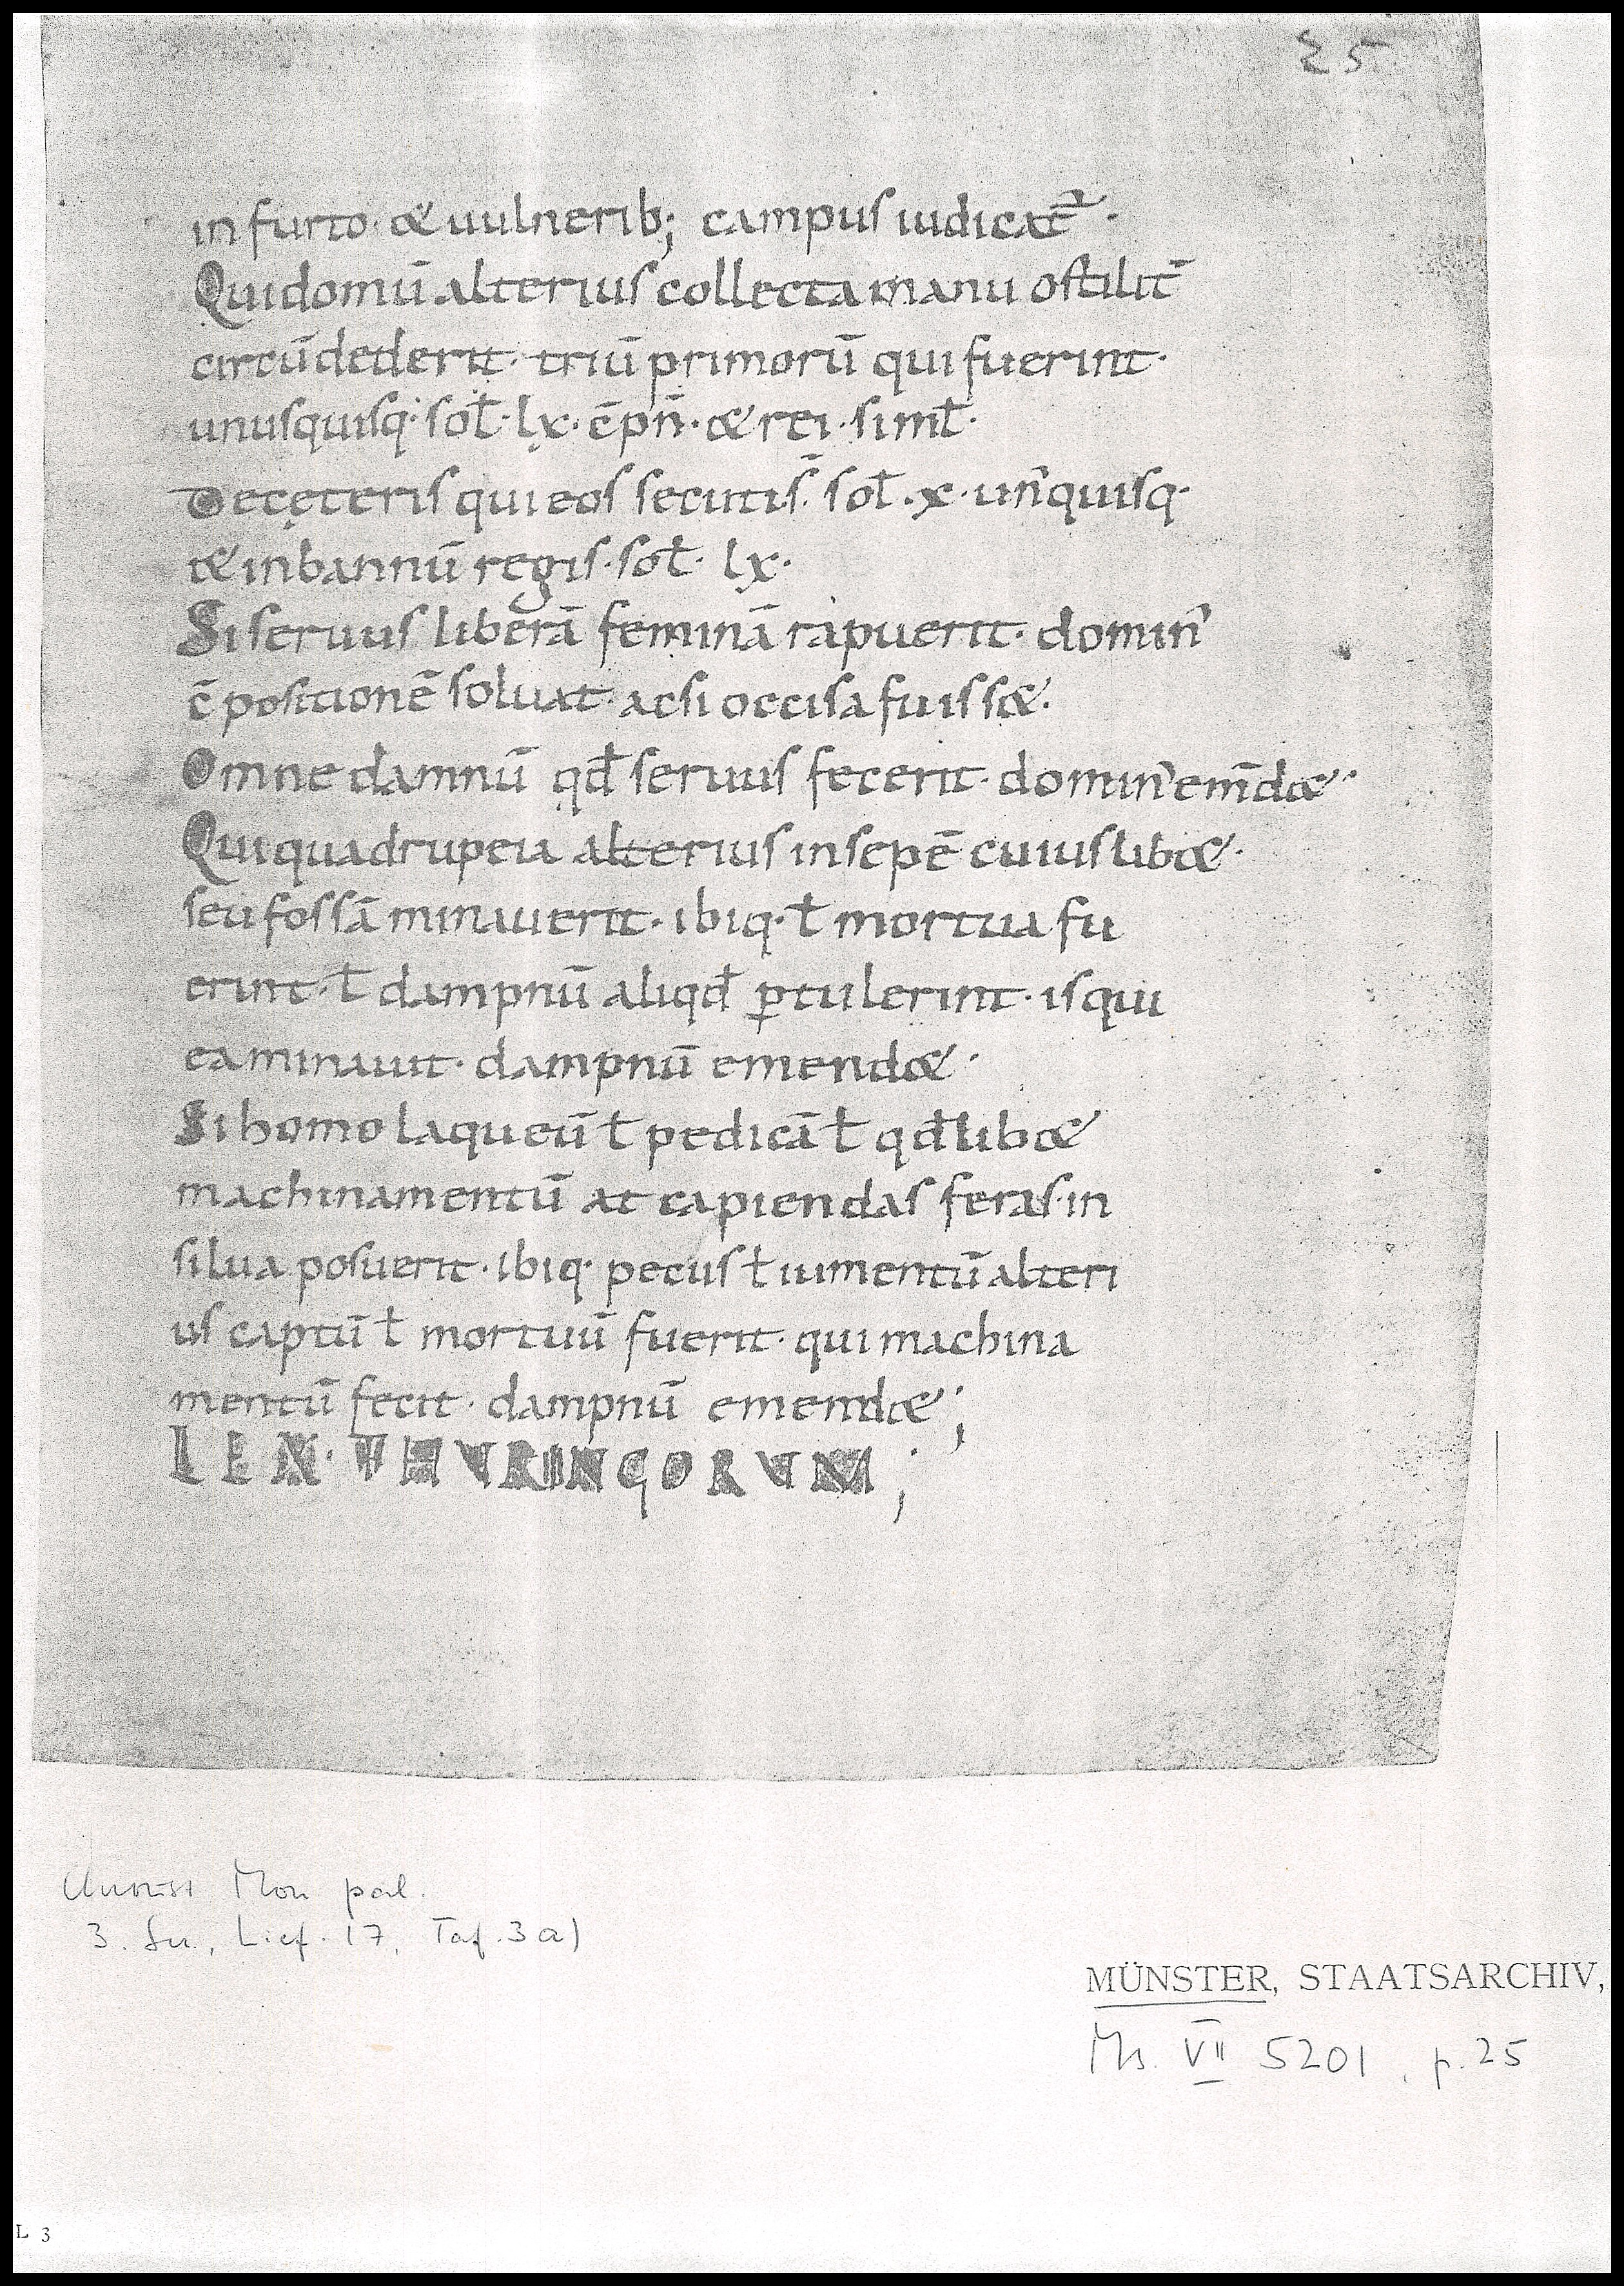 25
in furto · & uulnerib; campus iudicat᷑ ·
Qui domū alterius collecta manu ostilit̄
circūdederit · triū primorū qui fuerint ·
unusquisq· sol̄ · lx · c̄pn̄ · & rei · simł ·
De cęteris qui eos secuti s̄ · sol̄ · x · un᾽quisq·
& in bannū regis · sol̄ · lx ·
Si seruus liberā feminā rapuerit · domin᾽
c̄positionē soluat · ac si occisa fuiss& ·
Omne damnū qđ seruus fecerit · domin᾽ em̄d& ·
Qui quadrupeia alterius in sepē cuiuslib& ·
seu fossā minauerit · ibiq· ł mortua fu
erint · ł dampnū aliqđ ꝑtulerint · is qui
ea minauit · dampnū emend& ·
Si homo laqueū ł pedicā ł qđlib&
machinamentū at capiendas feras · in
silua posuerit · ibiq· pecus ł iumentū alteri
us captū ł mortuū fuerit · qui machina
mentū fecit · dampnū emend&;
LEX · THVRINGORVM;
Mon pal.
3. Ser., Lief. 17, Taf. 3a)
MÜNSTER, STAATSARCHIV,
Ms. VII 5201, p. 25
L 3